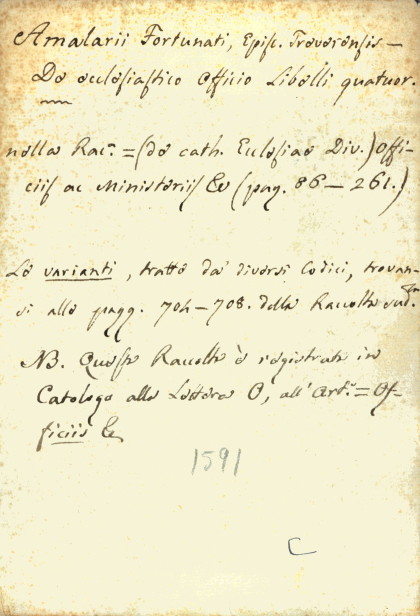 Amalarii Fortunati, Episc. Treverensis —
De ecclesiastico Officio Libelli quatuor.
nella Rac.ª = (de cath. Ecclesiae Div.) Offi-
ciis ac Ministeriis &c (pag. 86 — 261.)
Le varianti, tratte da' diversi Codici, trovan-
si alle pagg. 704 — 708. della Raccolta sud.ta
NB. Questa Raccolta è registrata in
Catalogo alla Lettera O, all'Art.º = Of-
ficiis &c
1591
C